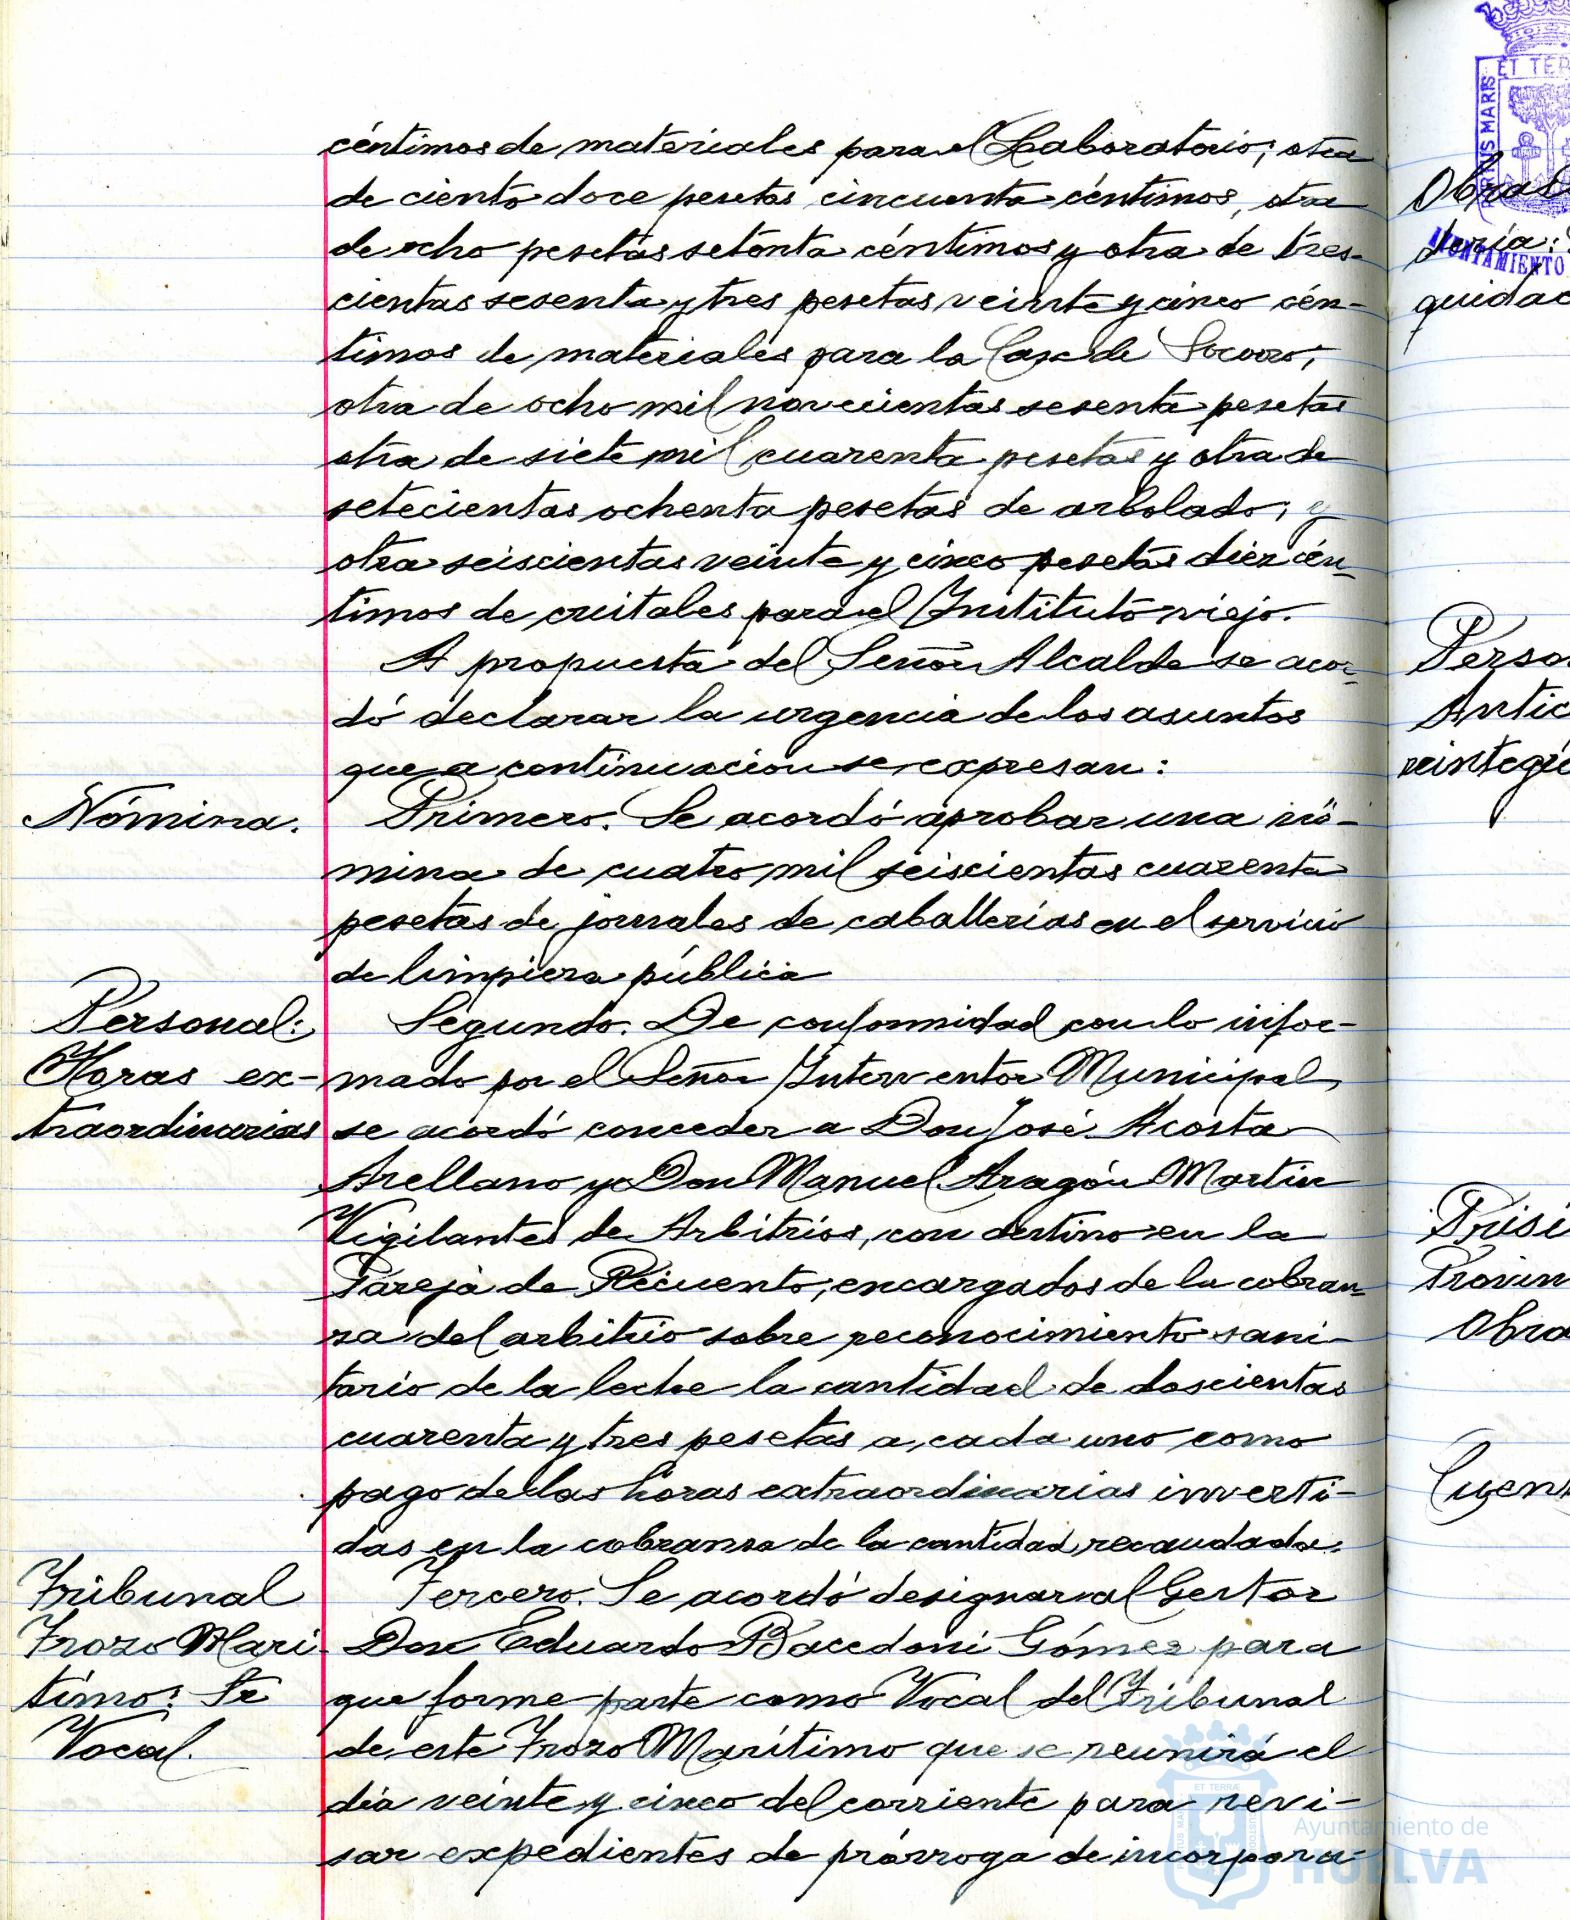 céntimos de materiales para el Laboratorio; otra
de ciento doce pesetas cincuenta céntimos, otra
de ocho pesetas setenta céntimos y otra de tres-
cientas sesenta y tres pesetas veinte y cinco cén-
timos de materiales para la Casa de Socorro;
otra de ocho mil novecientas sesenta pesetas
otra de siete mil cuarenta pesetas y otra de
setecientas ochenta pesetas de arbolado; y
otra seiscientas veinte y cinco pesetas diez cén-
timos de cristales para el Instituto viejo.
A propuesta del Señor Alcalde se acor-
dó declarar la urgencia de los asuntos
que a continuación se expresan:
Nómina.
Primero. Se acordó aprobar una nó-
mina de cuatro mil seiscientas cuarenta
pesetas de jornales de caballerías en el servicio
de limpieza pública
Personal:
Horas ex-
traordinarias
Segundo. De conformidad con lo infor-
mado por el Señor Interventor Municipal
se acordó conceder a Don José Acosta
Arellano y Don Manuel Aragón Martin
Vigilantes de Arbitrios, con destino en la
Pareja de Recuento, encargados de la cobran-
za del arbitrio sobre reconocimiento sani-
tario de la leche la cantidad de doscientas
cuarenta y tres pesetas a cada uno como
pago de las horas extraordinarias inverti-
das en la cobranza de la cantidad recaudada.
Tribunal
Trozo Mari
timo: Se
Vocal.
Tercero. Se acordó designar al Gestor
Don Eduardo Bacedoni Gómez para
que forme parte como Vocal del Tribunal
de este Trozo Marítimo que se reunirá el
día veinte y cinco del corriente para revi-
sar expedientes de prórroga de incorpora-
ET TER
PORTUS MARIS
AYUNTAMIENTO
Obras
dería:
quidac
Perso
Antic
reintegr
Prisi
Provin
Obra
Cuent
Ayuntamiento de
HUELVA